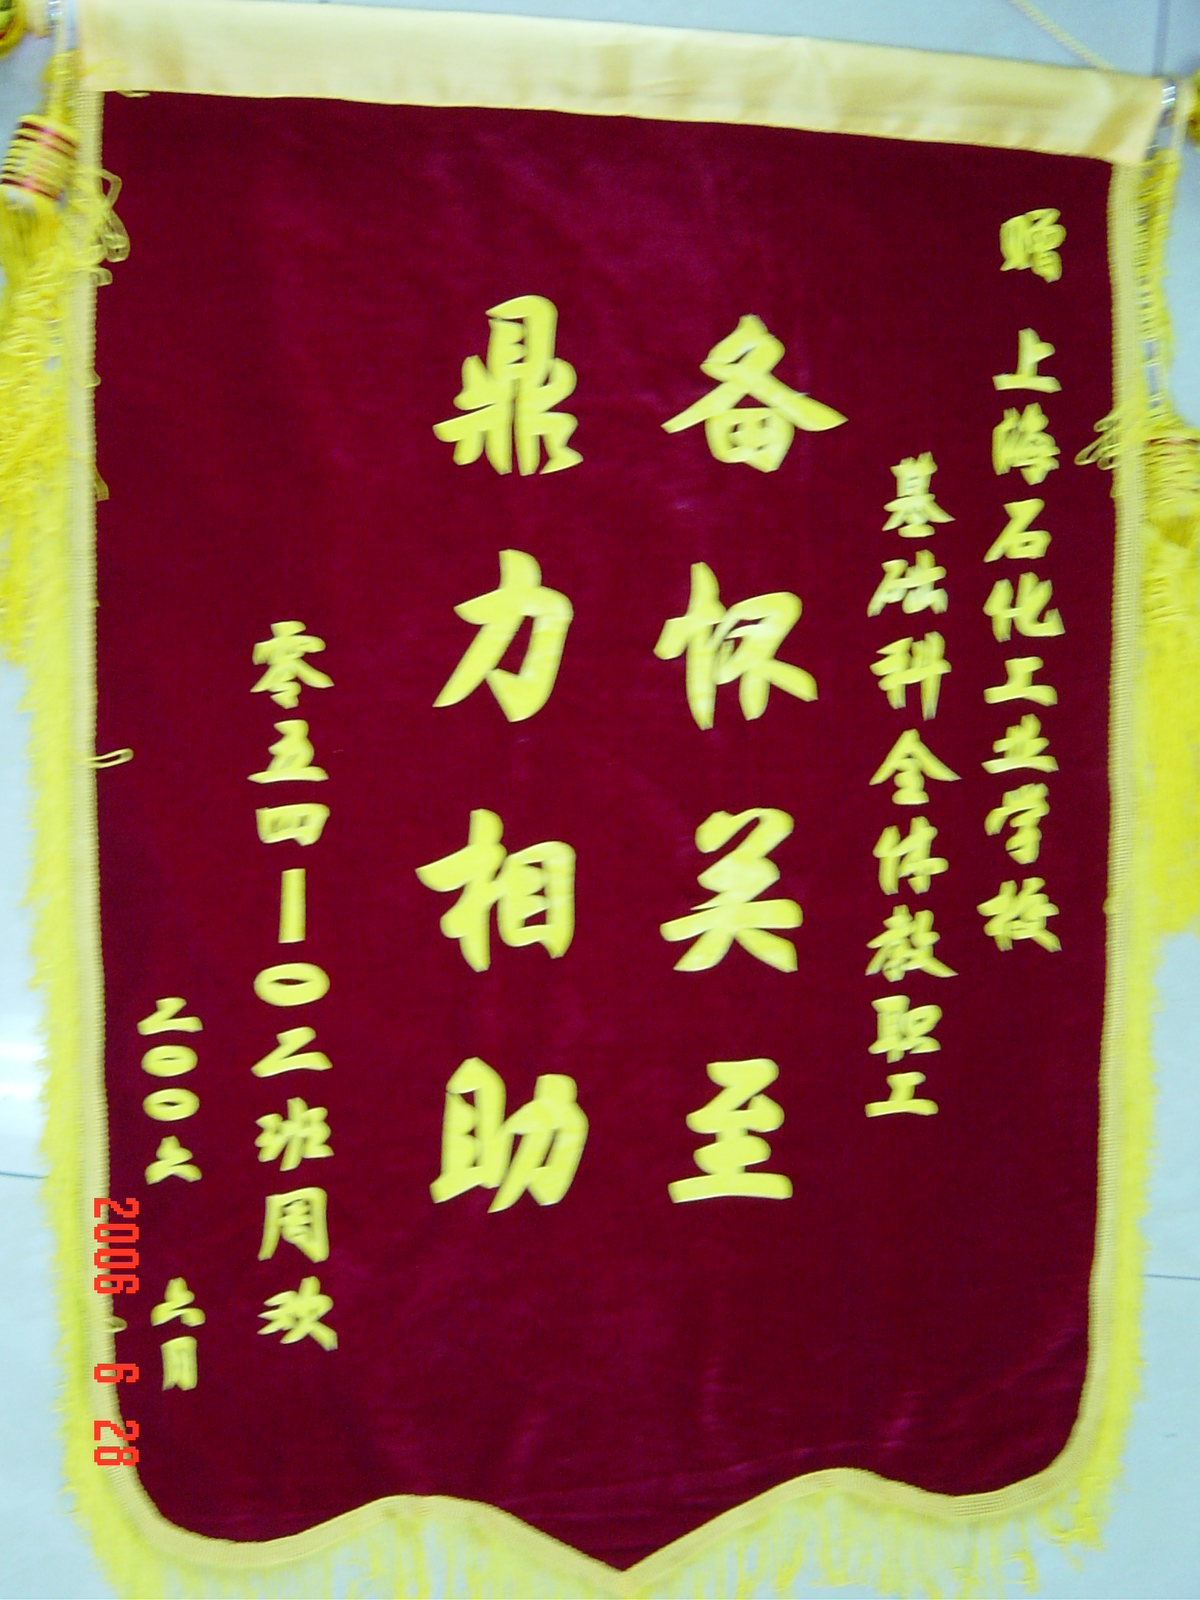 赠 上海石化工业学校
基础科全体教职工
备怀关至
鼎力相助
零五四一〇二班周欢
二〇〇六 六月
2006 6 28